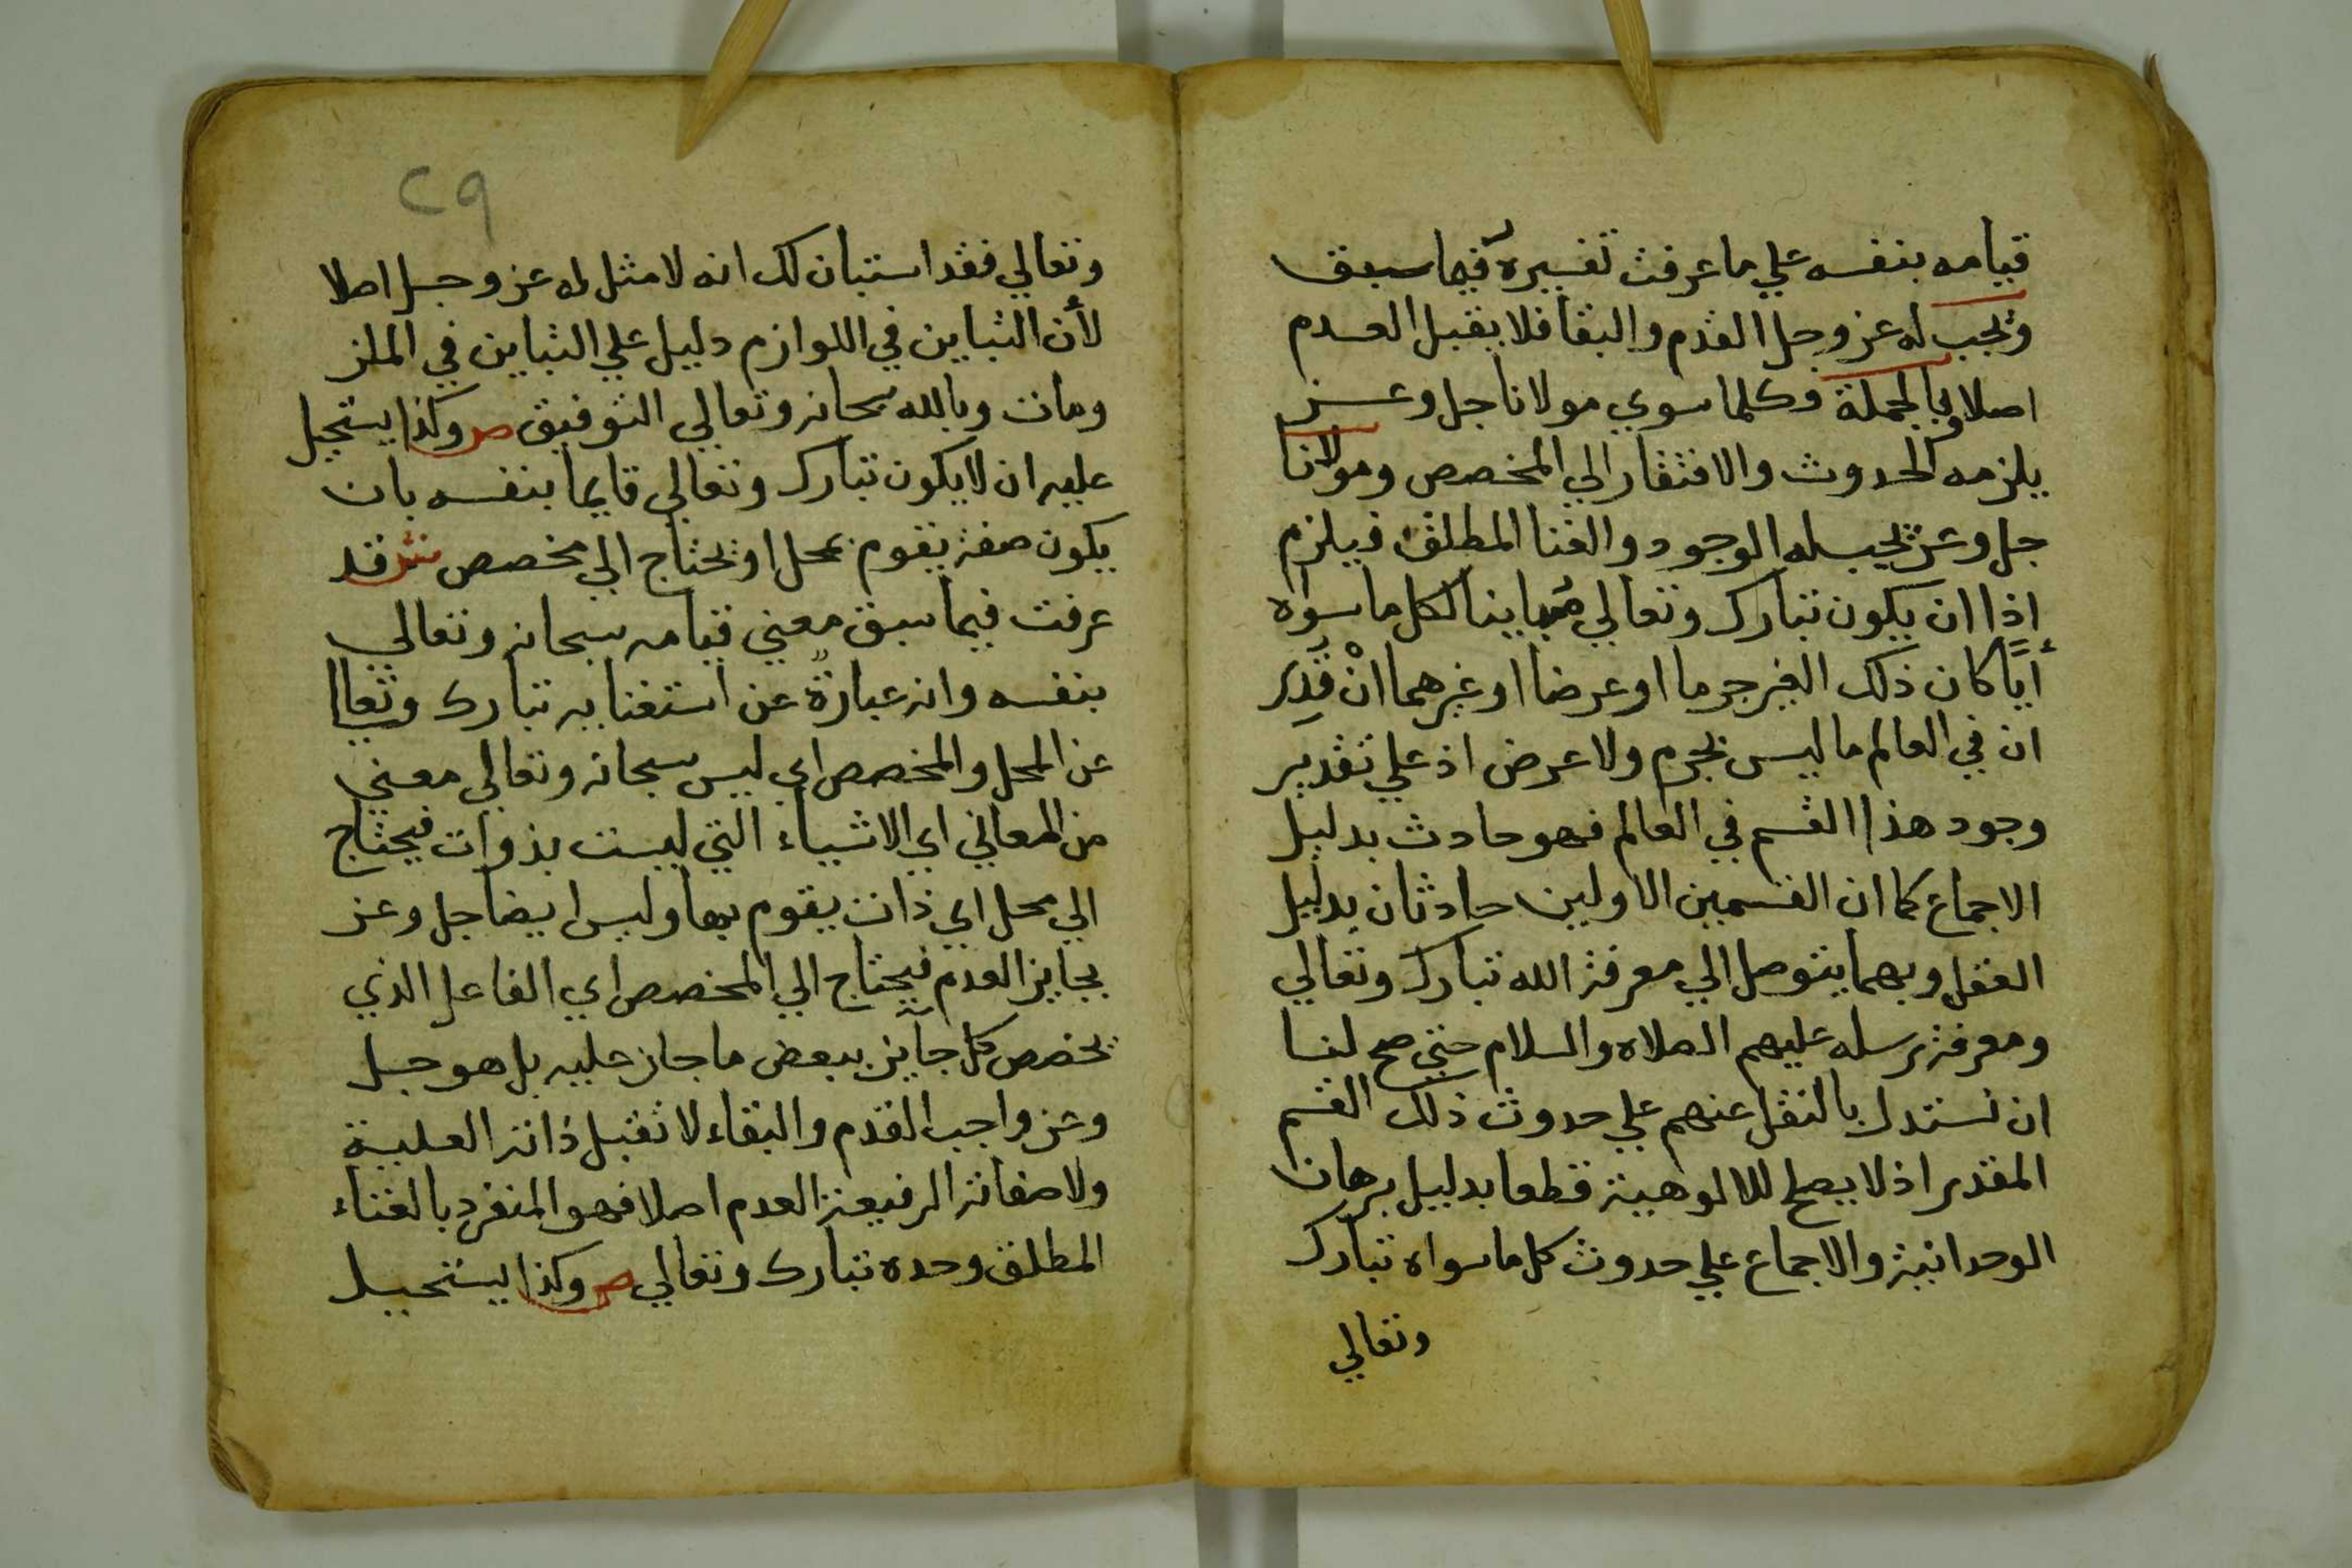 قيامه بنفسه علي ما عرفت تفسيره فيما سبق
ويجب له عز وجل القدم والبقا فلا يقبل العدم
اصلا وبالجملة فكلما سوي مولانا جل وعز
يلزمه الحدوث والافتقار الي المخصص ومولانا
جل وعز يجب له الوجود والغنا المطلق فيلزم
اذا ان يكون تبارك وتعالي مباينا لكل ما سواه
أيًّا كان ذلك الغير جرما او عرضا او غيرهما انْ قُدِّر
ان في العالم ما ليس بجرم ولا عرض اذ علي تقدير
وجود هذا القسم في العالم فهو حادث بدليل
الاجماع كما ان القسمين الاولين حادثان بدليل
العقل وبهما يتوصل الي معرفة الله تبارك وتعالي
ومعرفة رسله عليهم الصلاه والسلام حتي صح لنا
ان نستدل بالنقل عنهم علي حدوث ذلك القسم
المقدر اذ لا يصلح للالوهية قطعا بدليل برهان
الوحدانية والاجماع علي حدوث كل ما سواه تبارك
وتعالي
٢٩
وتعالي فقد استبان لك انه لا مثل له عز وجل اصلا
لأن التباين في اللوازم دليل علي التباين في الملز
ومات وبالله سبحانه وتعالي التوفيق ص وكذا يستحيل
عليه ان لا يكون تبارك وتعالي قايما بنفسه بان
يكون صفة يقوم بمحل او يحتاج الي مخصص ش قد
عرفت فيما سبق معني قيامه سبحانه وتعالي
بنفسه وانه عبارةٌ عن استغنايه تبارك وتعالي
عن المحل والمخصص اي ليس سبحانه وتعالي معني
من المعاني اي الاشياء التي ليست بذوات فيحتاج
الي محل اي ذات يقوم بها وليس ايضا جل وعز
بجايز العدم فيحتاج الي المخصص اي الفاعل الذي
يخصص كل جايز ببعض ما جاز عليه بل هو جل
وعز واجب القدم والبقاء لا تقبل ذاته العلية
ولا صفاته الرفيعة العدم اصلا فهو المنفرد بالغناء
المطلق وحده تبارك وتعالي ص وكذا يستحيل